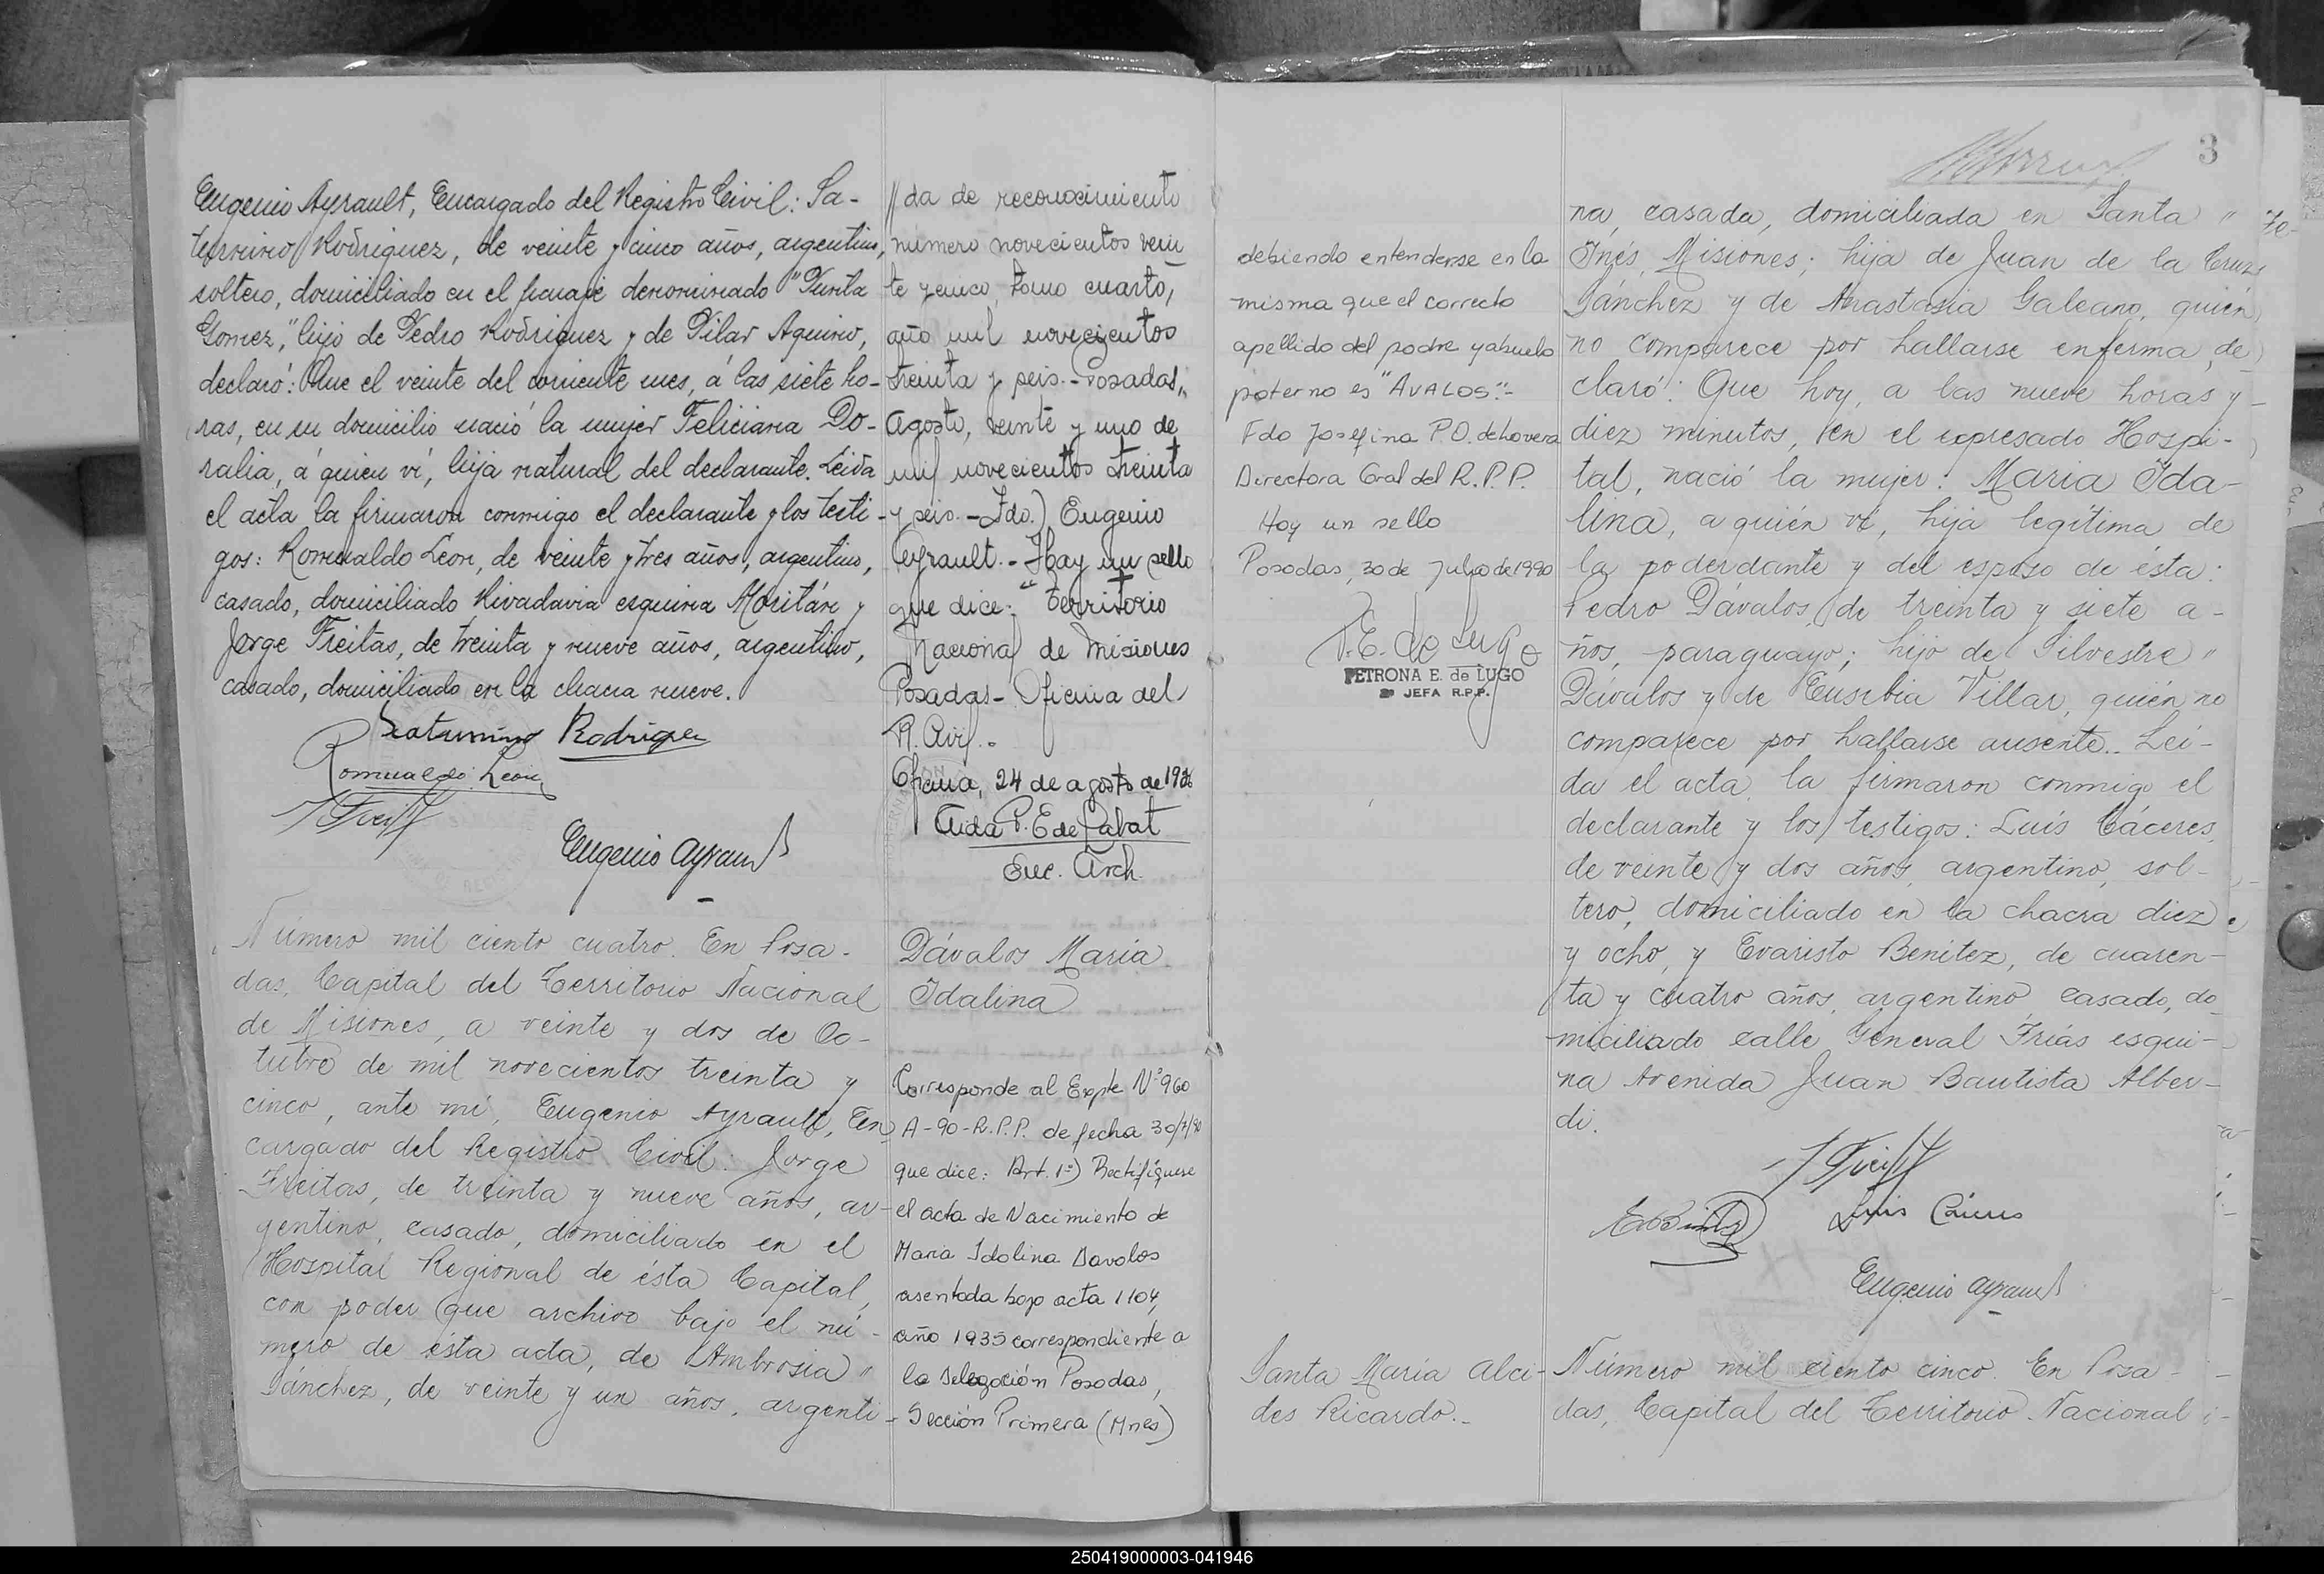 Eugenio Ayrault, Encargado del Registro Civil: Sa-
turnino Rodriguez, de veinte y cinco años, argentino,
soltero, domiciliado en el paraje denominado "Punta
Gomez," hijo de Pedro Rodriguez y de Pilar Aquino,
declaró: Que el veinte del corriente mes, á las siete ho-
ras, en su domicilio nació la mujer Feliciana Do-
ralia, á quien vi, hija natural del declarante. Leida
el acta la firmaron conmigo el declarante y los testi-
gos: Romualdo Leon, de veinte y tres años, argentino,
casado, domiciliado Rivadavia esquina Moritán y
Jorge Freitas, de treinta y nueve años, argentino,
casado, domiciliado en la chacra nueve.
Saturnino Rodriguez
Romualdo Leon
J Freitas
Eugenio Ayrault
Número mil ciento cuatro. En Posa-
das, Capital del Territorio Nacional
de Misiones, a veinte y dos de Oc-
tubre de mil novecientos treinta y
cinco, ante mi, Eugenio Ayrault, En
cargado del Registro Civil: Jorge
Freitas, de treinta y nueve años, ar-
gentino, casado, domiciliado en el
Hospital Regional de ésta Capital,
con poder que archivo bajo el nú-
mero de ésta acta, de Ambrosia "
Sánchez, de veinte y un años, argenti-
// da de reconocimiento
número novecientos vein
te y cinco, tomo cuarto,
año mil novecientos
treinta y seis.- Posadas,
Agosto, veinte y uno de
mil novecientos treinta
y seis.- Fdo.) Eugenio
Ayrault.- Hay un sello
que dice: "Territorio
Nacional de Misiones
Posadas- Oficina del
R. Civil.-
Oficina, 24 de agosto de 1936
Aida P. E de Labat
Enc. Arch.
Dávalos María
Idalina
Corresponde al Expte Nº 960
A-90-R.P.P. de fecha 30/7/90
que dice: Art. 1º) Rectifíquese
el acta de Nacimiento de
Maria Idalina Davalos
asentada bajo acta 1104,
año 1935 correspondiente a
la Delegación Posadas,
Sección Primera (Mnes)
debiendo entenderse en la
misma que el correcto
apellido del padre y abuelo
paterno es "AVALOS".-
Fdo Josefina P.O. de Lovera
Directora Gral del R.P.P.
Hay un sello
Posadas, 30 de Julio de 1990
P.E. de Lugo
PETRONA E. de LUGO
JEFA R.P.P.
Santa María Alci-
des Ricardo.-
3
na, casada, domiciliada en Santa "
Inés, Misiones; hija de Juan de la Cruz
Sánchez y de Anastasia Galeano, quién
no comparece por hallarse enferma, de-
claró: Que hoy, a las nueve horas y
diez minutos, en el expresado Hospi-
tal, nació la mujer: Maria Ida-
lina, a quién vi, hija legítima de
la poderdante y del esposo de ésta:
Pedro Dávalos, de treinta y siete a-
ños, paraguayo; hijo de Silvestre "
Dávalos y de Eusebia Villar, quién no
comparece por hallarse ausente.. Lei-
da el acta, la firmaron conmigo el
declarante y los testigos: Luis Cáceres,
de veinte y dos años, argentino, sol-
tero, domiciliado en la chacra diez
y ocho, y Evaristo Benitez, de cuaren-
ta y cuatro años, argentino, casado, do
miciliado calle General Frías esqui-
na Avenida Juan Bautista Alber-
di.
J Freitas
Luis Cáceres
Eugenio Ayrault
Número mil ciento cinco. En Posa-
das, Capital del Territorio Nacional
250419000003-041946